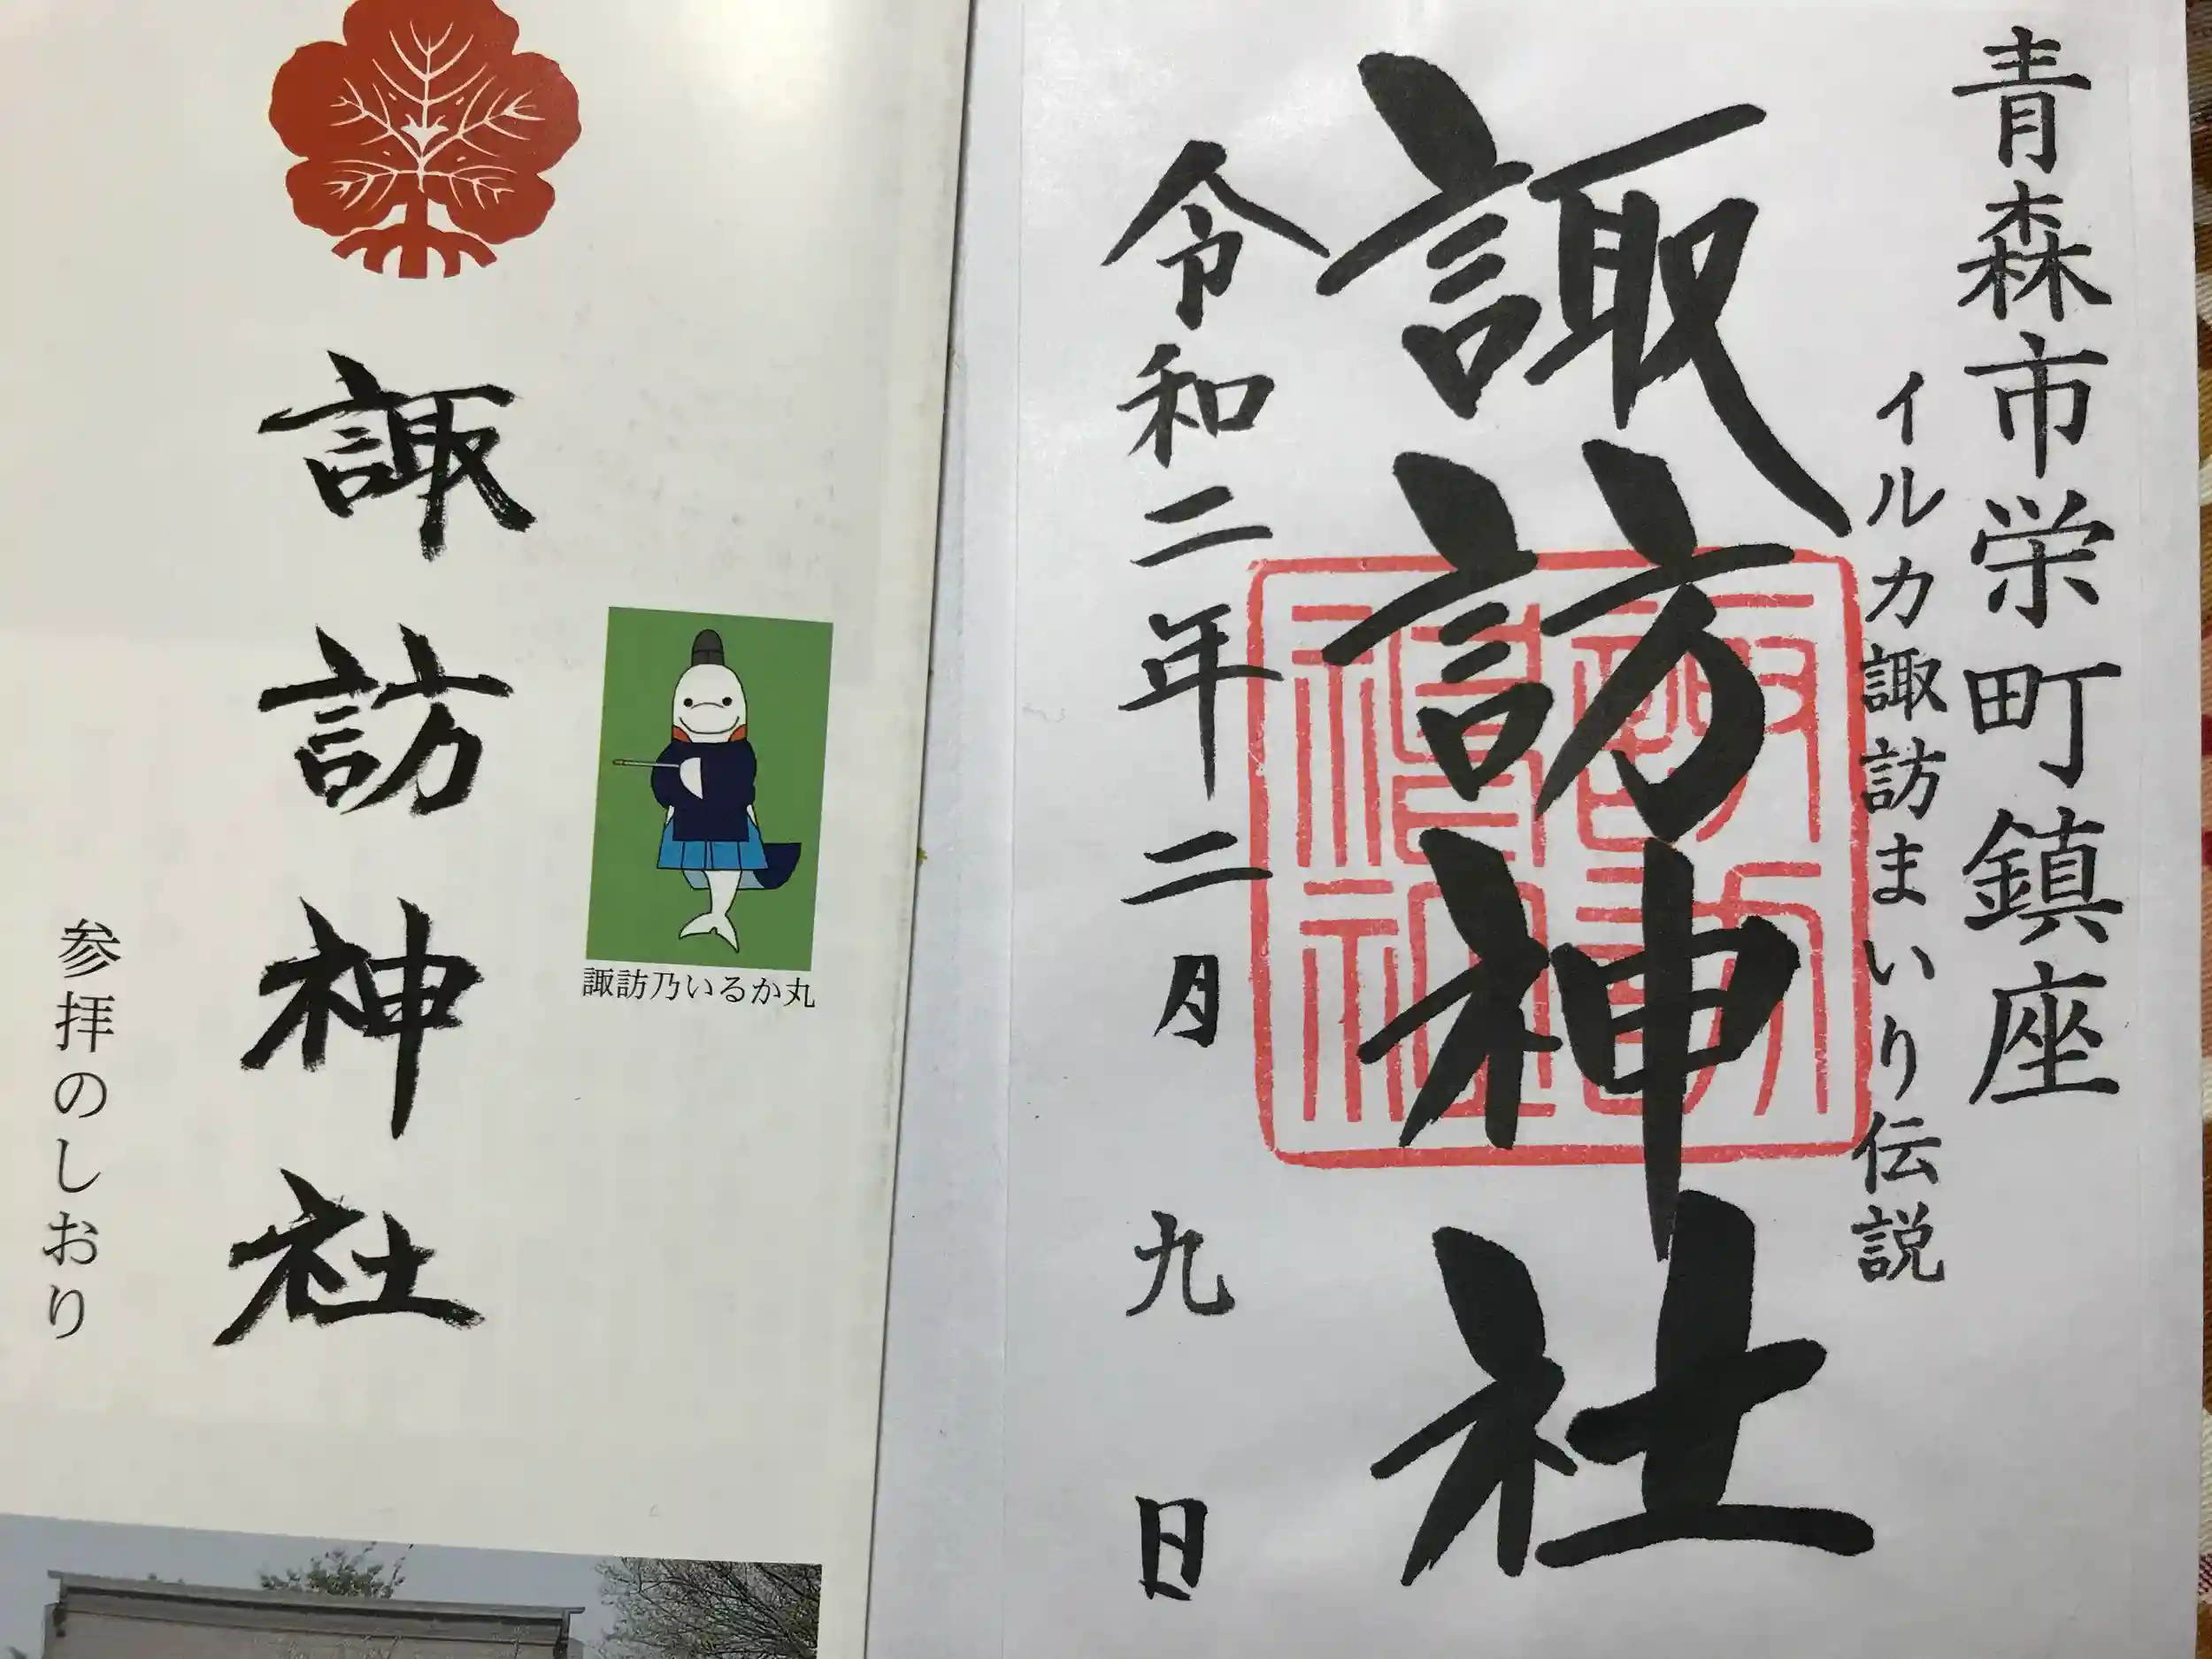 青森市栄町鎮座
イルカ諏訪まいり伝説
諏訪神社
令和二年二月九日
諏訪神社
諏訪乃いるか丸
諏訪神社
参拝のしおり